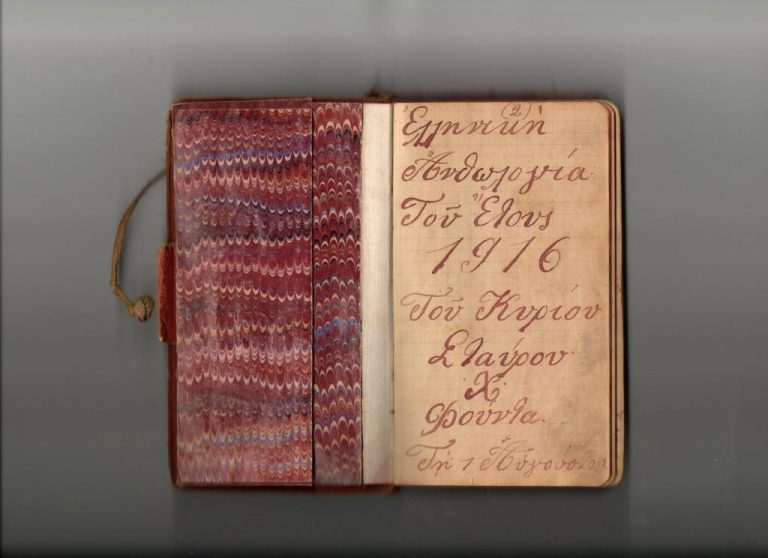 (2)
Ἑλληνικὴ
Ἀνθωλογία
Τοῦ Ἔτους
1916
Τοῦ Κυρίου
Σταύρου
Χ.
Φούντα.
Τῇ 1 Αὐγούστου